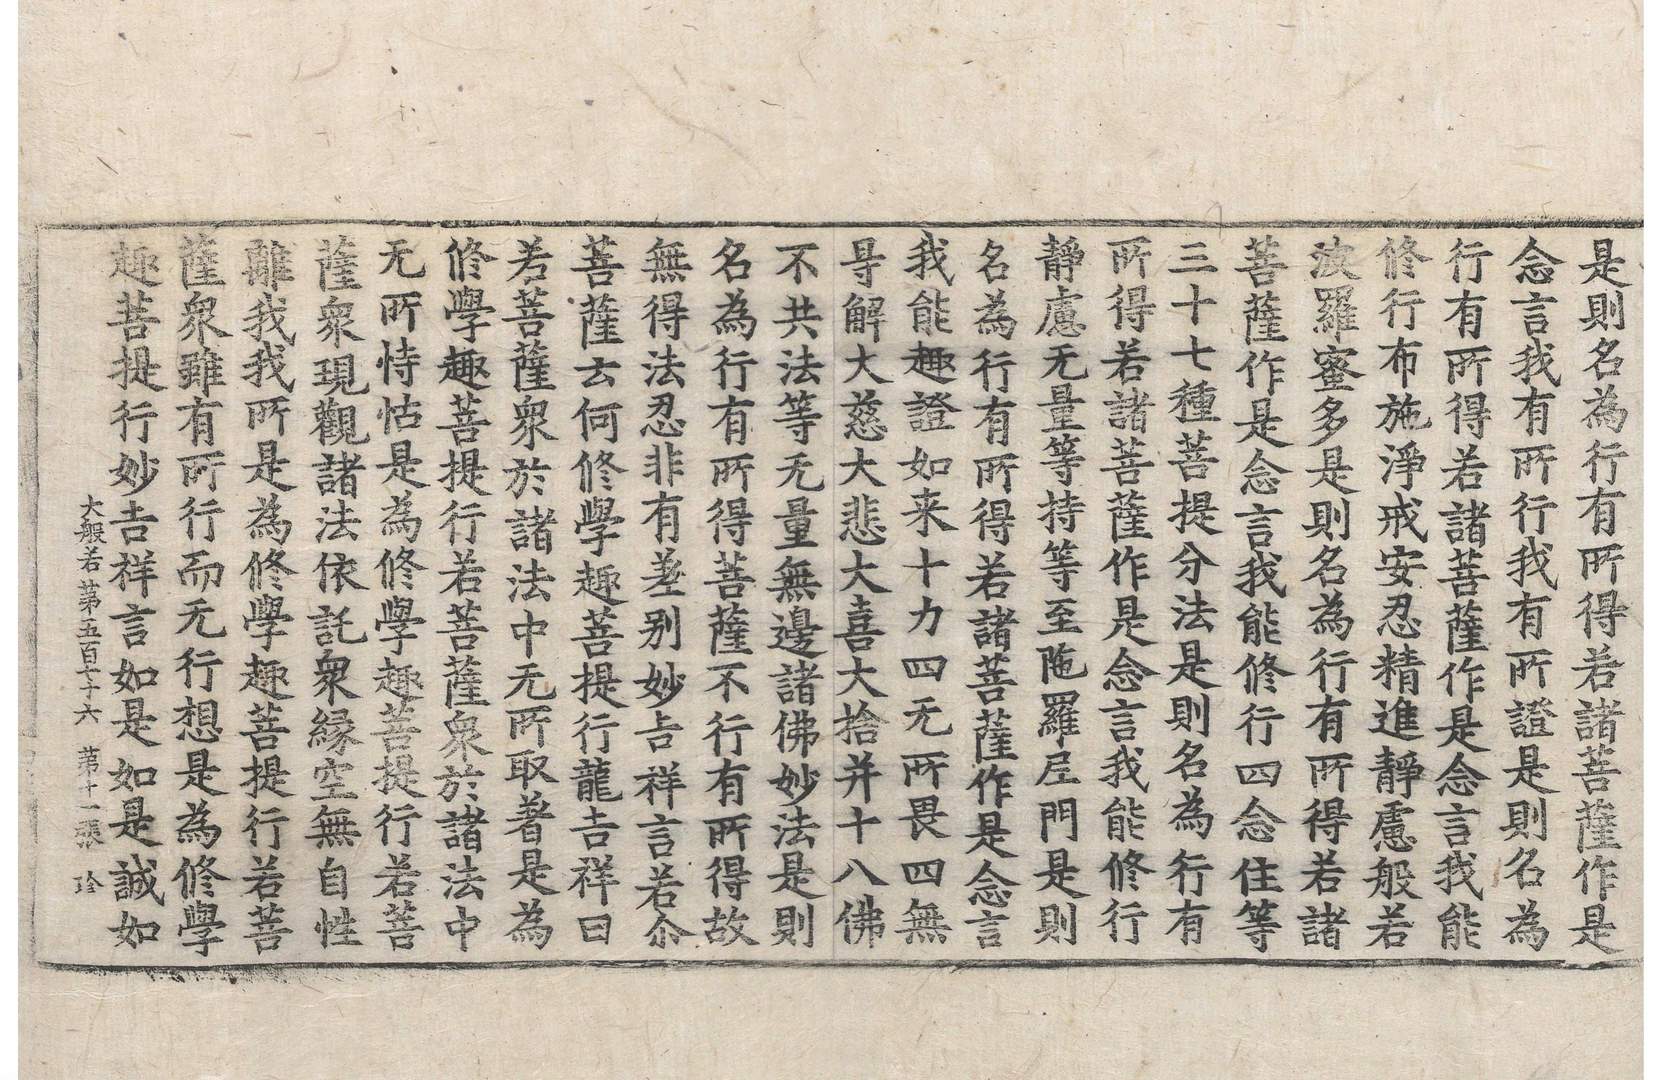 是則名為行有所得若諸菩薩作是
念言我有所行我有所證是則名為
行有所得若諸菩薩作是念言我能
修行布施淨戒安忍精進靜慮般若
波羅蜜多是則名為行有所得若諸
菩薩作是念言我能修行四念住等
三十七種菩提分法是則名為行有
所得若諸菩薩作是念言我能修行
靜慮无量等持等至陁羅尼門是則
名為行有所得若諸菩薩作是念言
我能趣證如来十力四无所畏四無
㝵解大慈大悲大喜大捨并十八佛
不共法等无量無邊諸佛妙法是則
名為行有所得菩薩不行有所得故
無得法忍非有差别妙吉祥言若尒
菩薩云何修學趣菩提行龍吉祥曰
若菩薩衆於諸法中无所取著是為
修學趣菩提行若菩薩衆於諸法中
无所恃怙是為修學趣菩提行若菩
薩衆現觀諸法依託衆緣空無自性
離我我所是為修學趣菩提行若菩
薩衆雖有所行而无行想是為修學
趣菩提行妙吉祥言如是如是誠如
大般若第五百七十六 第十一張 珍